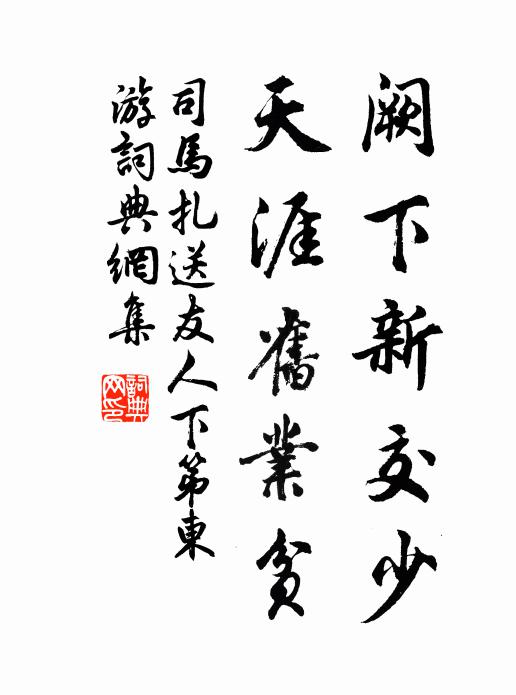 闕下新交少
天涯舊業貧
司馬扎送友人下第東
游詞典網集
詞典
网印